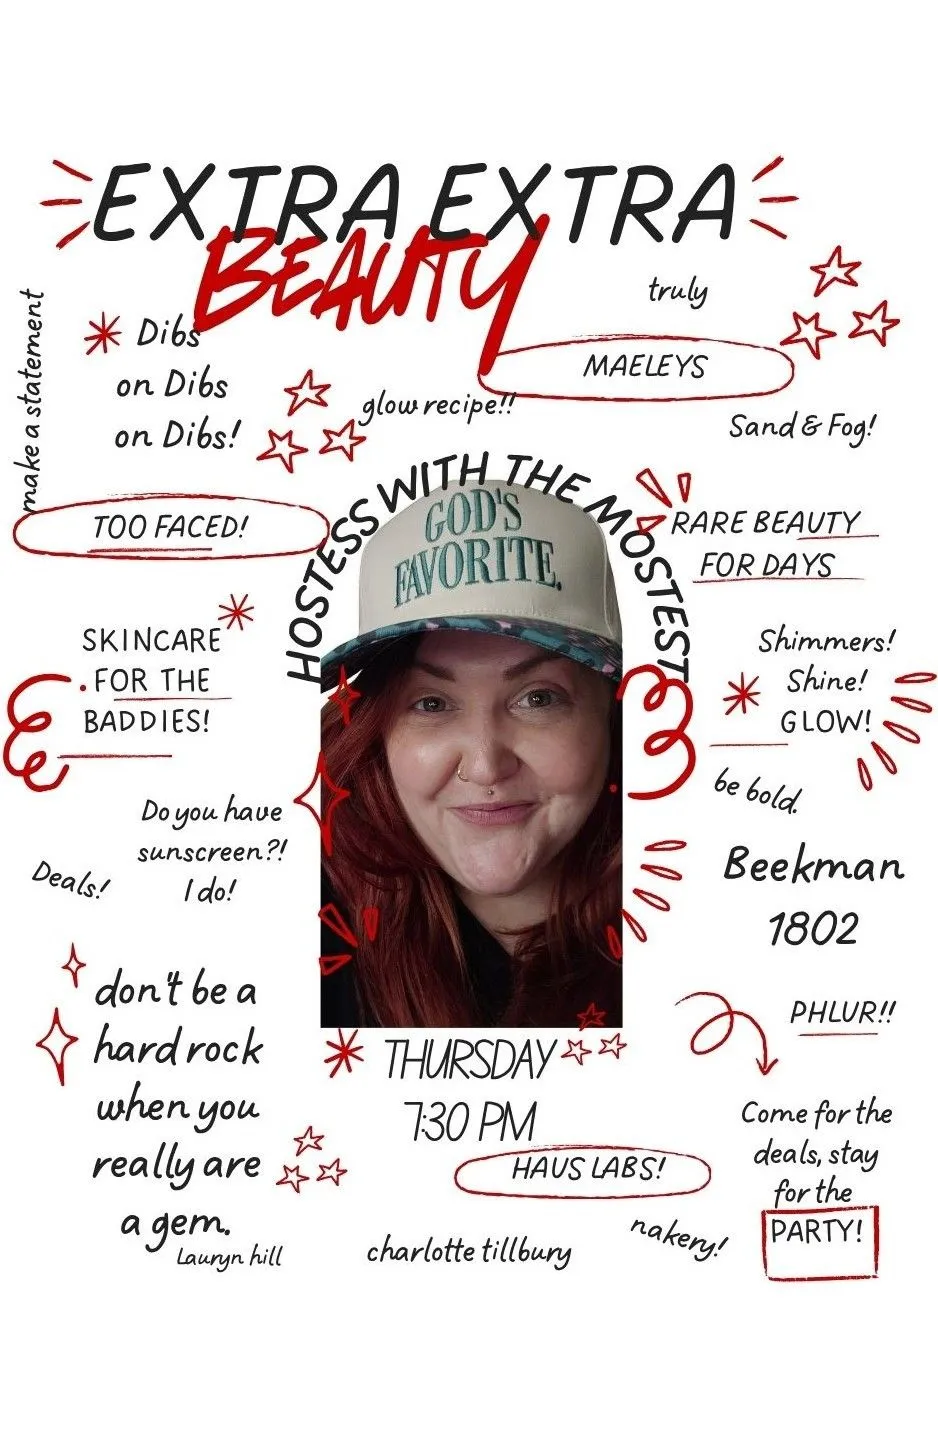 EXTRA EXTRA
BEAUTY
make a statement
truly
Dibs
on Dibs
on Dibs!
MAELEYS
glow recipe!!
Sand & Fog!
HOSTESS WITH THE MOSTEST
GOD'S
FAVORITE.
TOO FACED!
RARE BEAUTY
FOR DAYS
SKINCARE
FOR THE
BADDIES!
Shimmers!
Shine!
GLOW!
be bold.
Do you have
sunscreen?!
I do!
Deals!
Beekman
1802
don't be a
hard rock
when you
really are
a gem.
Lauryn hill
PHLUR!!
THURSDAY
7:30 PM
HAUS LABS!
charlotte tillbury
nakery!
Come for the
deals, stay
for the
PARTY!